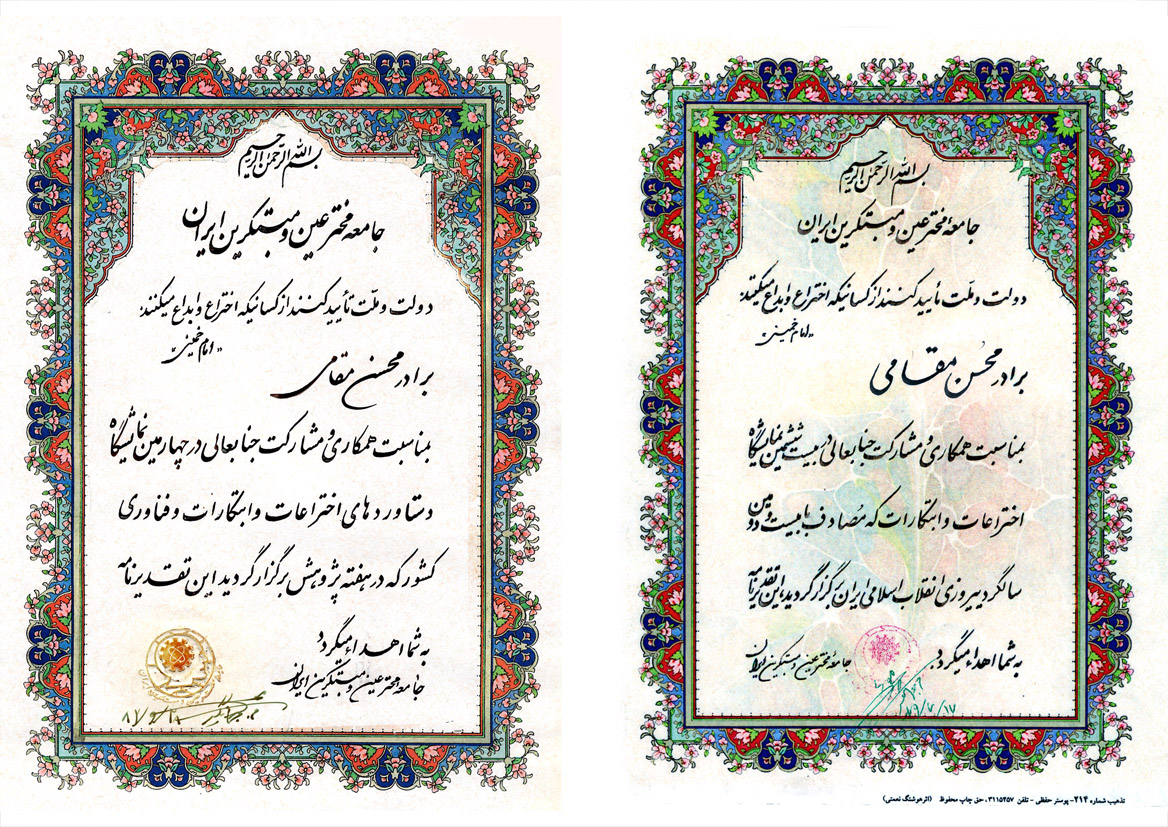 بسم الله الرحمن الرحیم
جامعه مخترعین و مبتکرین ایران
دولت و ملّت تأیید کنند از کسانیکه اختراع و ابداع میکنند؛
"امام خمینی"
برادر محسن مقامی
بمناسبت همکاری و مشارکت جنابعالی در چهارمین نمایشگاه
دستاوردهای اختراعات و ابتکارات و فناوری
کشور که در هفته پژوهش برگزار گردید این تقدیرنامه
به شما اهداء میگردد
جامعه مخترعین و مبتکرین ایران
بسم الله الرحمن الرحیم
جامعهٔ مخترعین و مبتکرین ایران
دولت و ملّت تأیید کنند از کسانیکه اختراع و ابداع میکنند؛
"امام خمینی"
برادر محسن مقامی
بمناسبت همکاری و مشارکت جنابعالی در بیست ششمین نمایشگاه
اختراعات و ابتکارات که مُصادف با بیست و دومین
سالگرد پیروزی انقلاب اسلامی ایران برگزار گردید، این تقدیرنامه
به شما اهداء میگردد.
جامعهٔ مخترعین و مبتکرین ایران
تذهیب شماره ۲۱۴- پوستر حفظی - تلفن ، حق چاپ محفوظ (اثر هوشنگ نعمتی)